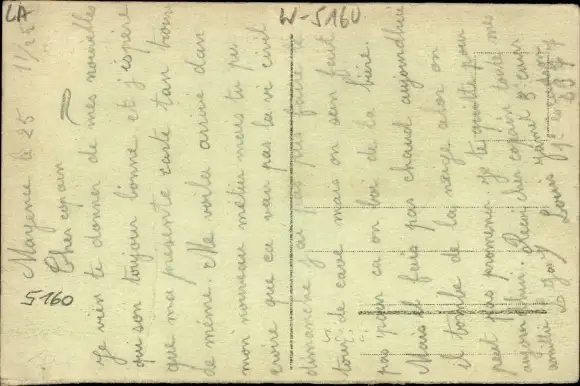 LA
W-5160
5160
Mayence le 25
Cher copain
Je vien te donner de mes nouvelles
qui son toujour bonne et j'espère
que ma presente carte tan trouve
de même. Me voila arrivé dan
mon nouveau métier mais tu peu
croire que ca vau pas la vi civil
dimanche j'ai pas peu faire le
tour de cave mais on sen fait
pas pour ca on boi de la bière.
Mais il fais pas chaud aujourdhui
il tombe de la neige alor on
peut pas promener. Je te quitte pour
aujourdhui. Recoi cher copain toute mes
amitié
Louis